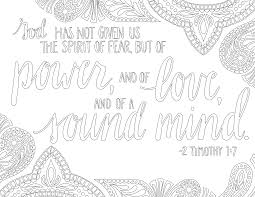 God HAS NOT GIVEN US
THE SPIRIT OF FEAR, BUT OF
power, AND OF love,
AND OF A
sound mind.
-2 TIMOTHY 1:7